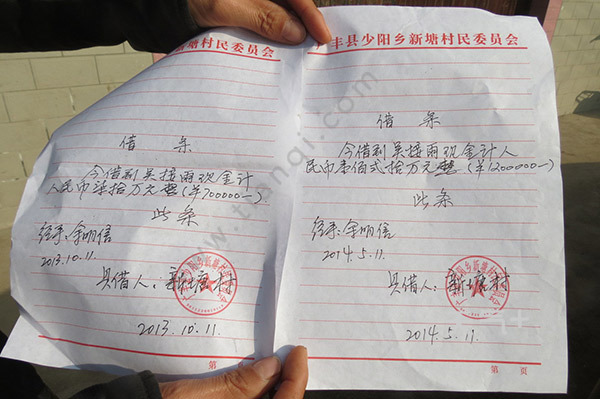 塘村民委员会
借条
今借到吴接雨现金计
人民币柒拾万元整(¥700000—)
此条
经手:余明信
2013.10.11.
具借人:新塘村
2013.10.11.
第
丰县少阳乡新塘村民委员会
借条
今借到吴接雨现金计人
民币壹佰弍拾万元整(¥1200000—)
此条
经手:余明信
2014.5.11.
具借人:新塘村
2014.5.11
第 页
www.tianqi.com